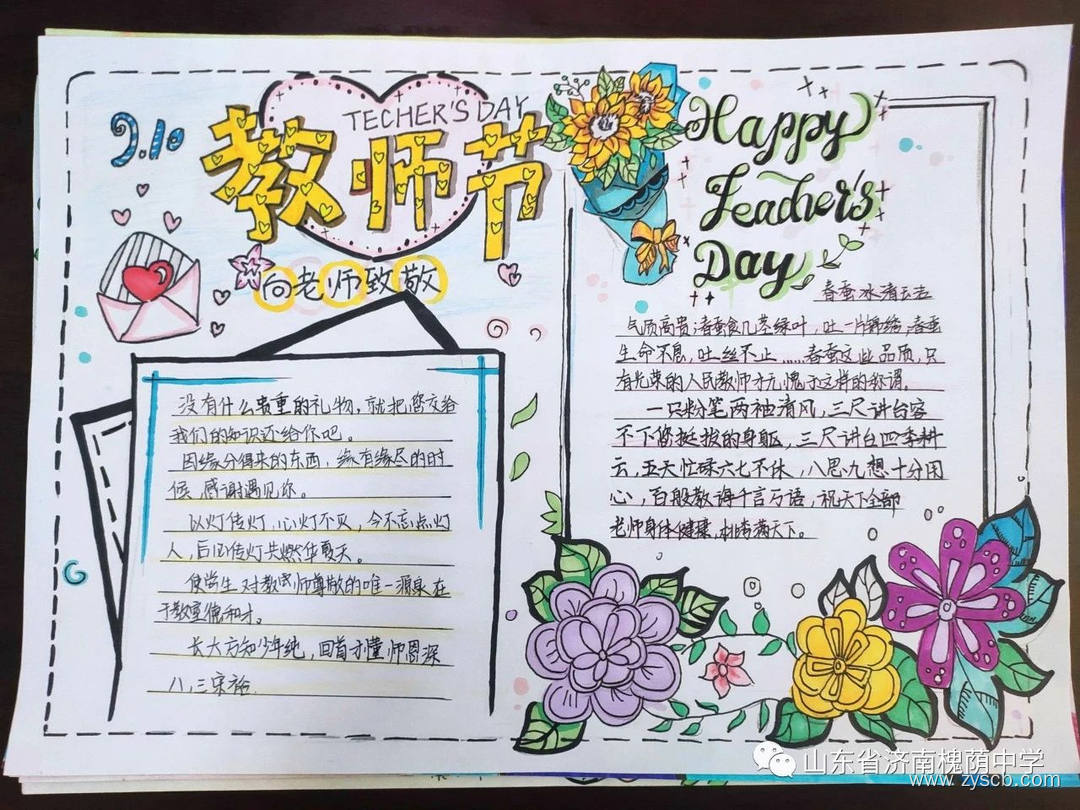 9.10
TECHER'S DAY
教师节
向老师致敬
没有什么贵重的礼物，就把您交给
我们的知识还给你吧。
因缘分得来的东西，缘有缘尽的时
候，感谢遇见你。
以灯传灯，心灯不灭，今不忘点灯
人，后因传灯共燃华夏天。
使学生对教师尊敬的唯一源泉在
于教室德和才。
长大方知少年纯，回首才懂师恩深
八，三宋裕
Happy
Teacher's
Day
春蚕冰清玉洁
气质高贵；春蚕食几茎绿叶，吐一片锦绣；春蚕
生命不息，吐丝不止……春蚕这些品质，只
有光荣的人民教师才无愧于这样的称谓。
一只粉笔两袖清风，三尺讲台容
不下您挺拔的身躯，三尺讲台四季耕
云，五天忙碌六七不休，八思九想十分用
心，百般教诲千言万语，祝天下全部
老师身体健康，桃李满天下。
山东省济南槐荫中学
www.zyscb.com